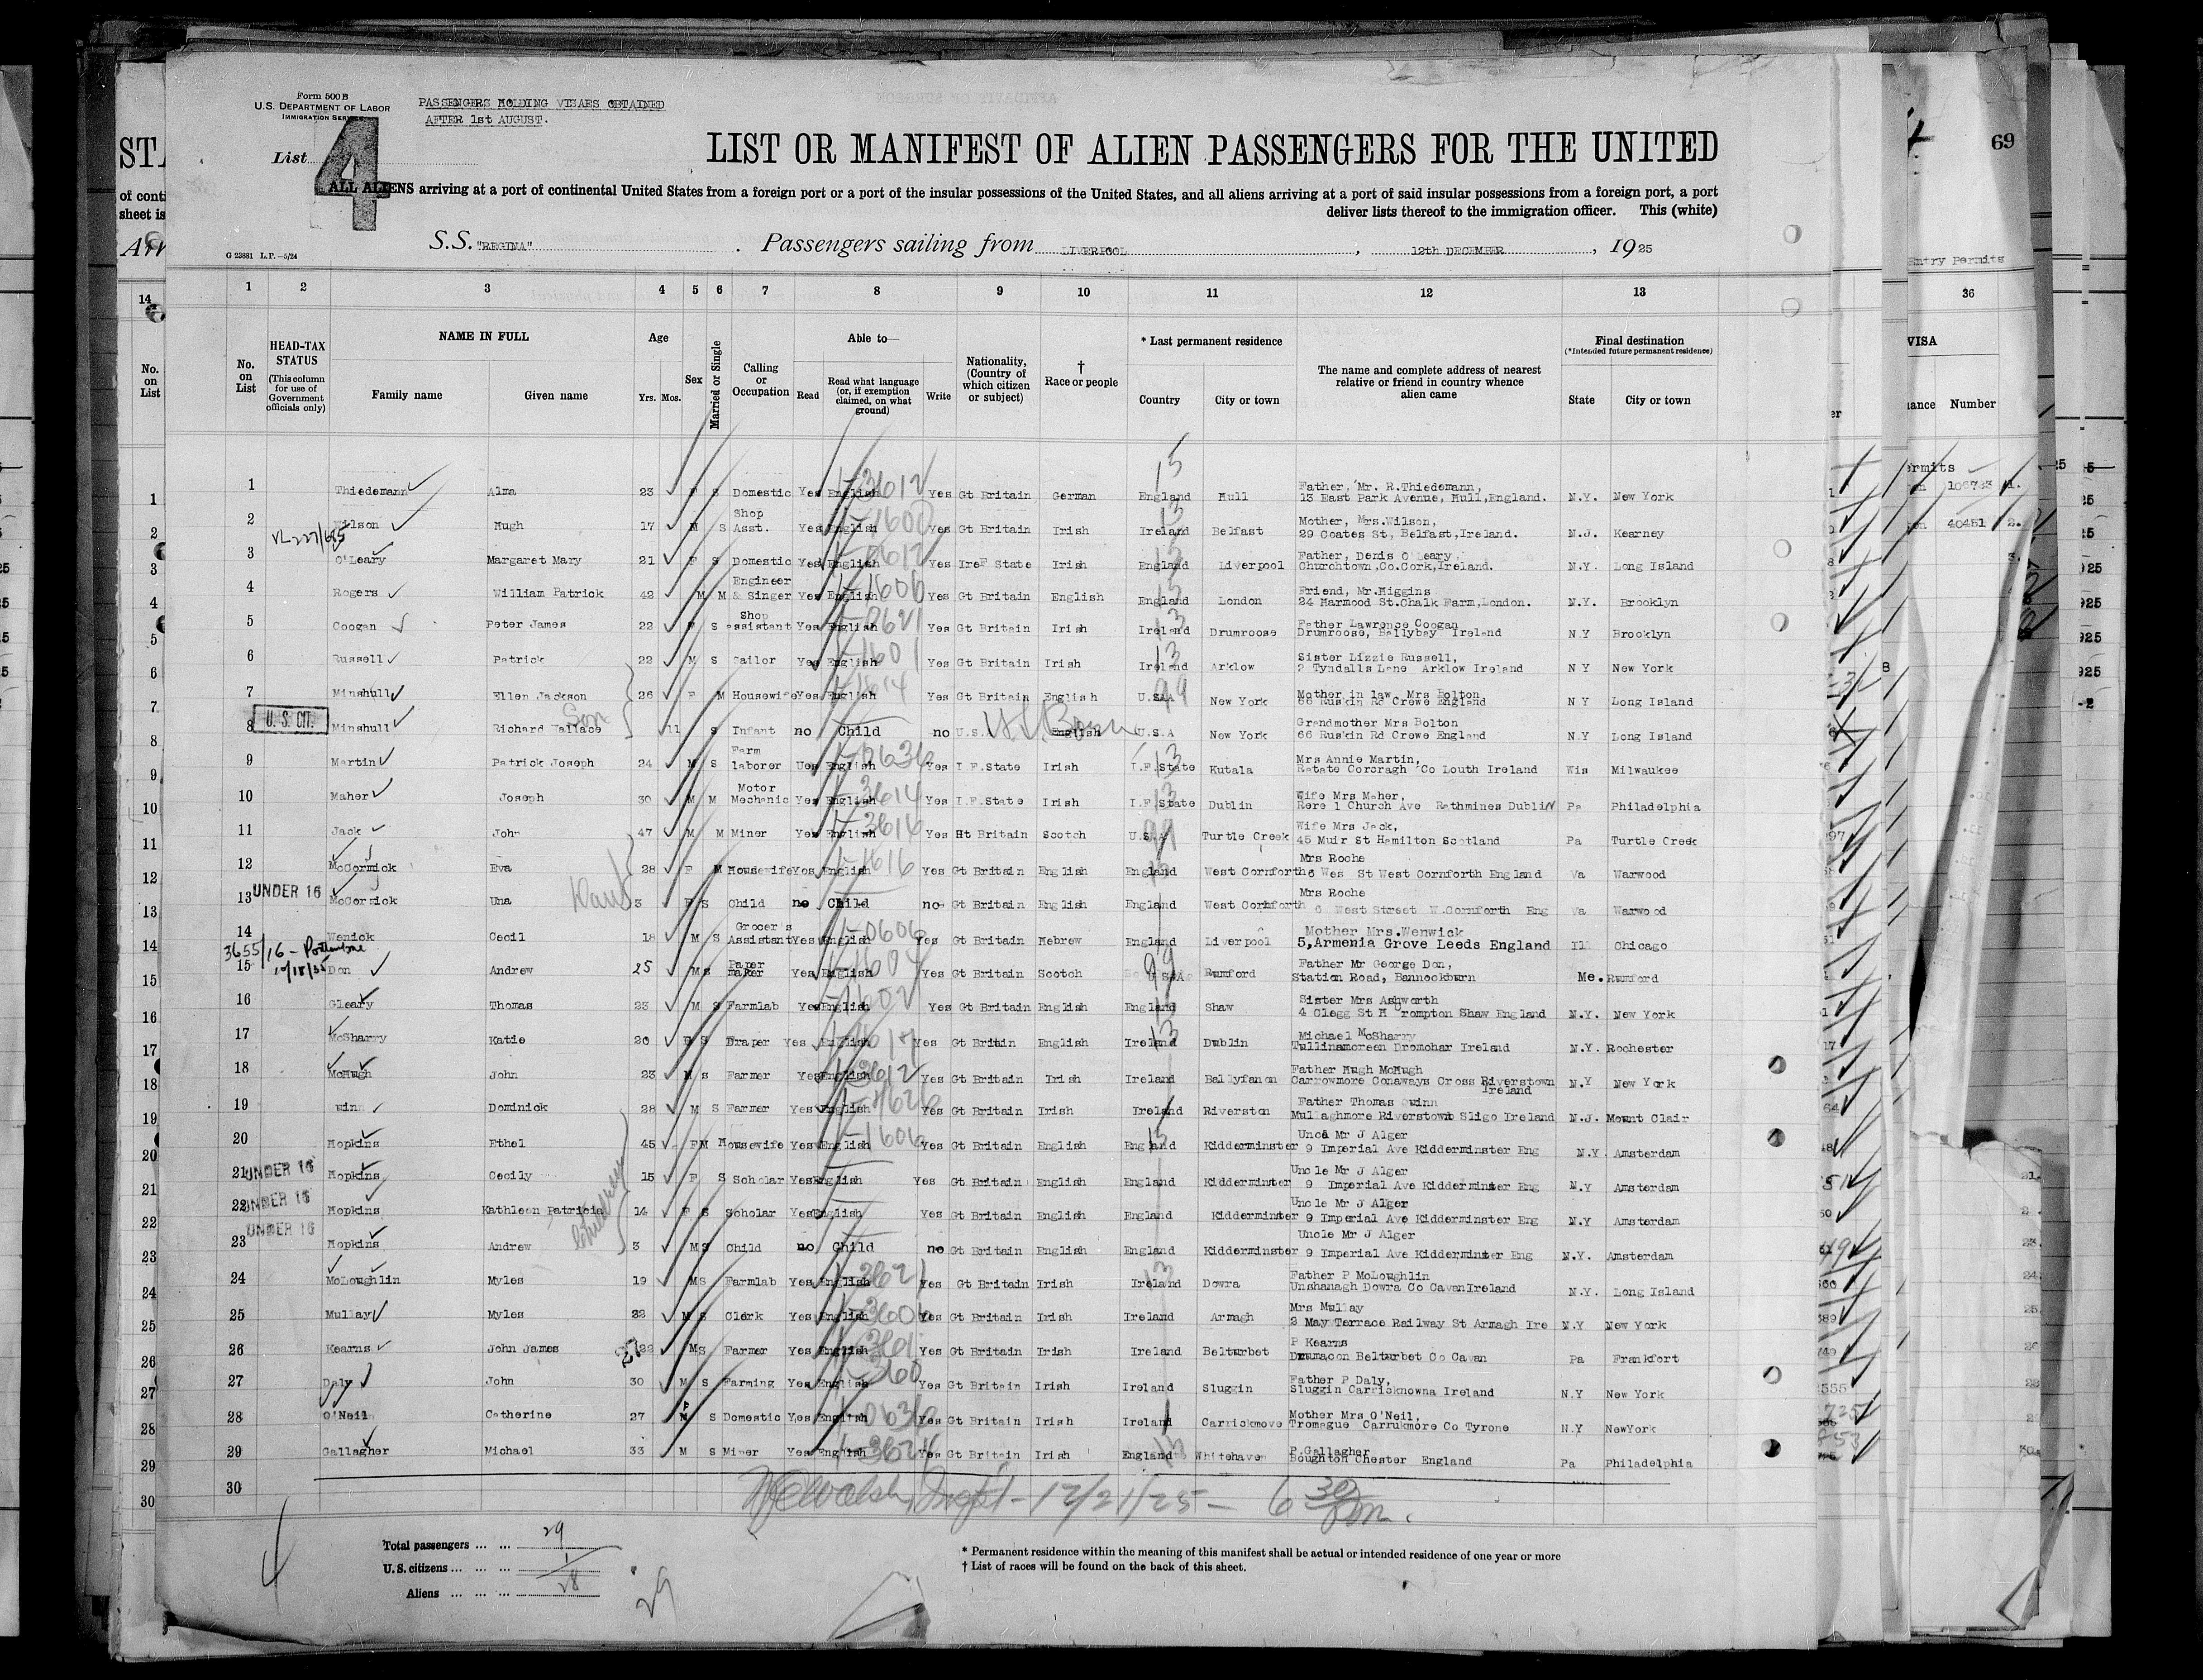 Form 500 B
U.S. DEPARTMENT OF LABOR
IMMIGRATION SERVICE
PASSENGERS HOLDING VISAES OBTAINED
AFTER 1st AUGUST.
List 4
LIST OR MANIFEST OF ALIEN PASSENGERS FOR THE UNITED
ALL ALIENS arriving at a port of continental United States from a foreign port or a port of the insular possessions of the United States, and all aliens arriving at a port of said insular possessions from a foreign port, a port
deliver lists thereof to the immigration officer. This (white)
S.S. "REGINA" . Passengers sailing from LIVERPOOL , 12th DECEMBER , 1925
G 23881 L.P.—5/24
1 2 3 4 5 6 7 8 9 10 11 12 13
No. on List
HEAD-TAX STATUS (This column for use of Government officials only)
NAME IN FULL Family name Given name
Age Yrs. Mos.
Sex
Married or Single
Calling or Occupation
Able to— Read Read what language (or, if exemption claimed, on what ground) Write
Nationality, (Country of which citizen or subject)
† Race or people
* Last permanent residence Country City or town
The name and complete address of nearest relative or friend in country whence alien came
Final destination (*Intended future permanent residence) State City or town
1 Thiedemann Alma 23 F S Domestic Yes English Yes Gt Britain German England Hull Father, Mr. R.Thiedemann, 13 East Park Avenue, Hull,England. N.Y. New York
2 Wilson Hugh 17 M S Shop Asst. Yes English Yes Gt Britain Irish Ireland Belfast Mother, Mrs.Wilson, 29 Coates St, Belfast,Ireland. N.J. Kearney
3 O'Leary Margaret Mary 21 F S Domestic Yes English Yes IreF State Irish England Liverpool Father, Denis O'Leary, Churchtown,Co.Cork,Ireland. N.Y. Long Island
4 Rogers William Patrick 42 M M Engineer & Singer Yes English Yes Gt Britain English England London Friend, Mr.Higgins 24 Harmood St.Chalk Farm,London. N.Y. Brooklyn
5 Coogan Peter James 22 S Shop assistant Yes English Yes Gt Britain Irish Ireland Drumroose Father Lawrence Coogan Drumroose, Ballybay Ireland N.Y Brooklyn
6 Russell Patrick 22 M S Sailor Yes English Yes Gt Britain Irish Ireland Arklow Sister Lizzie Russell, 2 Tyndalls Lane Arklow Ireland N Y New York
7 Minshull Ellen Jackson 26 F M Housewife Yes English Yes Gt Britain English U.S.A New York Mother in law, Mrs Bolton 66 Ruskin Rd Crewe England N Y Long Island
U. S. CIT.
8 Minshull Richard Wallace Son 11 S Infant no Child no U.S. English U.S.A New York Grandmother Mrs Bolton 66 Ruskin Rd Crewe England N.Y Long Island
9 Martin Patrick Joseph 24 M S Farm laborer Ues English Yes I F.State Irish I.F.State Kutala Mrs Annie Martin, Ratate Corcragh Co Louth Ireland Wis Milwaukee
10 Maher Joseph 30 M M Motor Mechanic Yes English Yes I.F.State Irish I.F.State Dublin Wife Mrs Maher, Rere 1 Church Ave Rathmines Dublin Pa Philadelphia
11 Jack John 47 M M Miner Yes English Yes Ht Britain Scotch U.S.A Turtle Creek Wife Mrs Jack, 45 Muir St Hamilton Scotland Pa Turtle Creek
12 McCormick Eva 28 F M Housewife Yes English Yes Gt Britain English England West Cornforth Mrs Roche 6 Wes St West Cornforth England Va Warwood
UNDER 16
13 McCormick Una 3 F S Child no Child no Gt Britain English England West Cornforth Mrs Roche 6 West Street W.Cornforth Eng Va Warwood
14 Wenick Cecil 18 M S Grocer's Assistant Yes English Yes Gt Britain Hebrew England Liverpool Mother Mrs.Wenwick 5,Armenia Grove Leeds England Ill Chicago
3655/16
15 Don Andrew 25 M S Paper maker Yes English Yes Gt Britain Scotch Rumford Father Mr George Don, Station Road, Bannockburn Me. Rumford
16 Gleary Thomas 23 M S Farmlab Yes English Yes Gt Britain English England Shaw Sister Mrs Ashworth 4 Clegg St H Crompton Shaw England N.Y. New York
17 McSharry Katie 20 F S Draper Yes English Yes Gt Britin English Ireland Dublin Michael McSharry Tullinamoreen Dromohar Ireland N.Y. Rochester
18 McHugh John 23 M s Farmer Yes English Yes Gt Britain Irish Ireland Ballyfanon Father Hugh McHugh Carrowmore Conaways Cross Riverstown Ireland N.Y New York
19 Dominick 28 M S Farmer Yes English Yes Gt Britain Irish Ireland Riverston Father Thomas Quinn Mullaghmore Riverstown Sligo Ireland N.J. Mount Clair
20 Hopkins Ethel 45 F M Housewife Yes English Yes Gt Britain English England Kidderminster Mr J Alger 9 Imperial Ave Kidderminster Eng N.Y. Amsterdam
UNDER 16
21 Hopkins Cecily 15 F S Scholar Yes English Yes Gt Britain English England Kidderminster Uncle Mr J Alger 9 Imperial Ave Kidderminster Eng N.Y Amsterdam
UNDER 16
22 Hopkins Kathleen Patricia 14 F S Scholar Yes English Yes Gt Britain English England Kidderminster Uncle Mr J Alger 9 Imperial Ave Kidderminster Eng N.Y Amsterdam
UNDER 16
23 Hopkins Andrew 3 M S Child no Child no Gt Britain English England Kidderminster Uncle Mr J Alger 9 Imperial Ave Kidderminster Eng N.Y. Amsterdam
24 McLoughlin Myles 19 M s Farmlab Yes English Yes Gt Britain Irish Ireland Dowra Father P McLoughlin Unshanagh Dowra Co CavanIreland N.Y. Long Island
25 Mullay Myles M S Clerk Yes English Yes Gt Britain Irish Ireland Armagh Mrs Mullay 2 May Terrace Railway St Armagh Ire N.Y New York
26 Kearns John James M S Farmer Yes English Yes Gt Britain Irish Ireland Belturbet P Kearns Drumacon Belturbet Co Cavan Pa Frankfort
27 Daly John 30 M S Farming Yes English Yes Gt Britain Irish Ireland Sluggin Father P Daly, Sluggin Carricknowna Ireland N.Y New York
28 O'Neil Catherine 27 S Domestic Yes English Yes Gt Britain Irish Ireland Carrickmove Mother Mrs O'Neil, Tromague Carrukmore Co Tyrone N.Y NewYork
29 Gallagher Michael 33 M S Miner Yes English Yes Gt Britain Irish England Whitehaven P.Gallagher Boughton Chester England Pa Philadelphia
30
12/21/25 - 6 30 pm.
Total passengers ... ... 29
U.S. citizens ... ... ... 1
Aliens ... ... ... 28
29
* Permanent residence within the meaning of this manifest shall be actual or intended residence of one year or more
† List of races will be found on the back of this sheet.
69
Entry Permits
36
VISA
Number
106723 1.
40451 2.